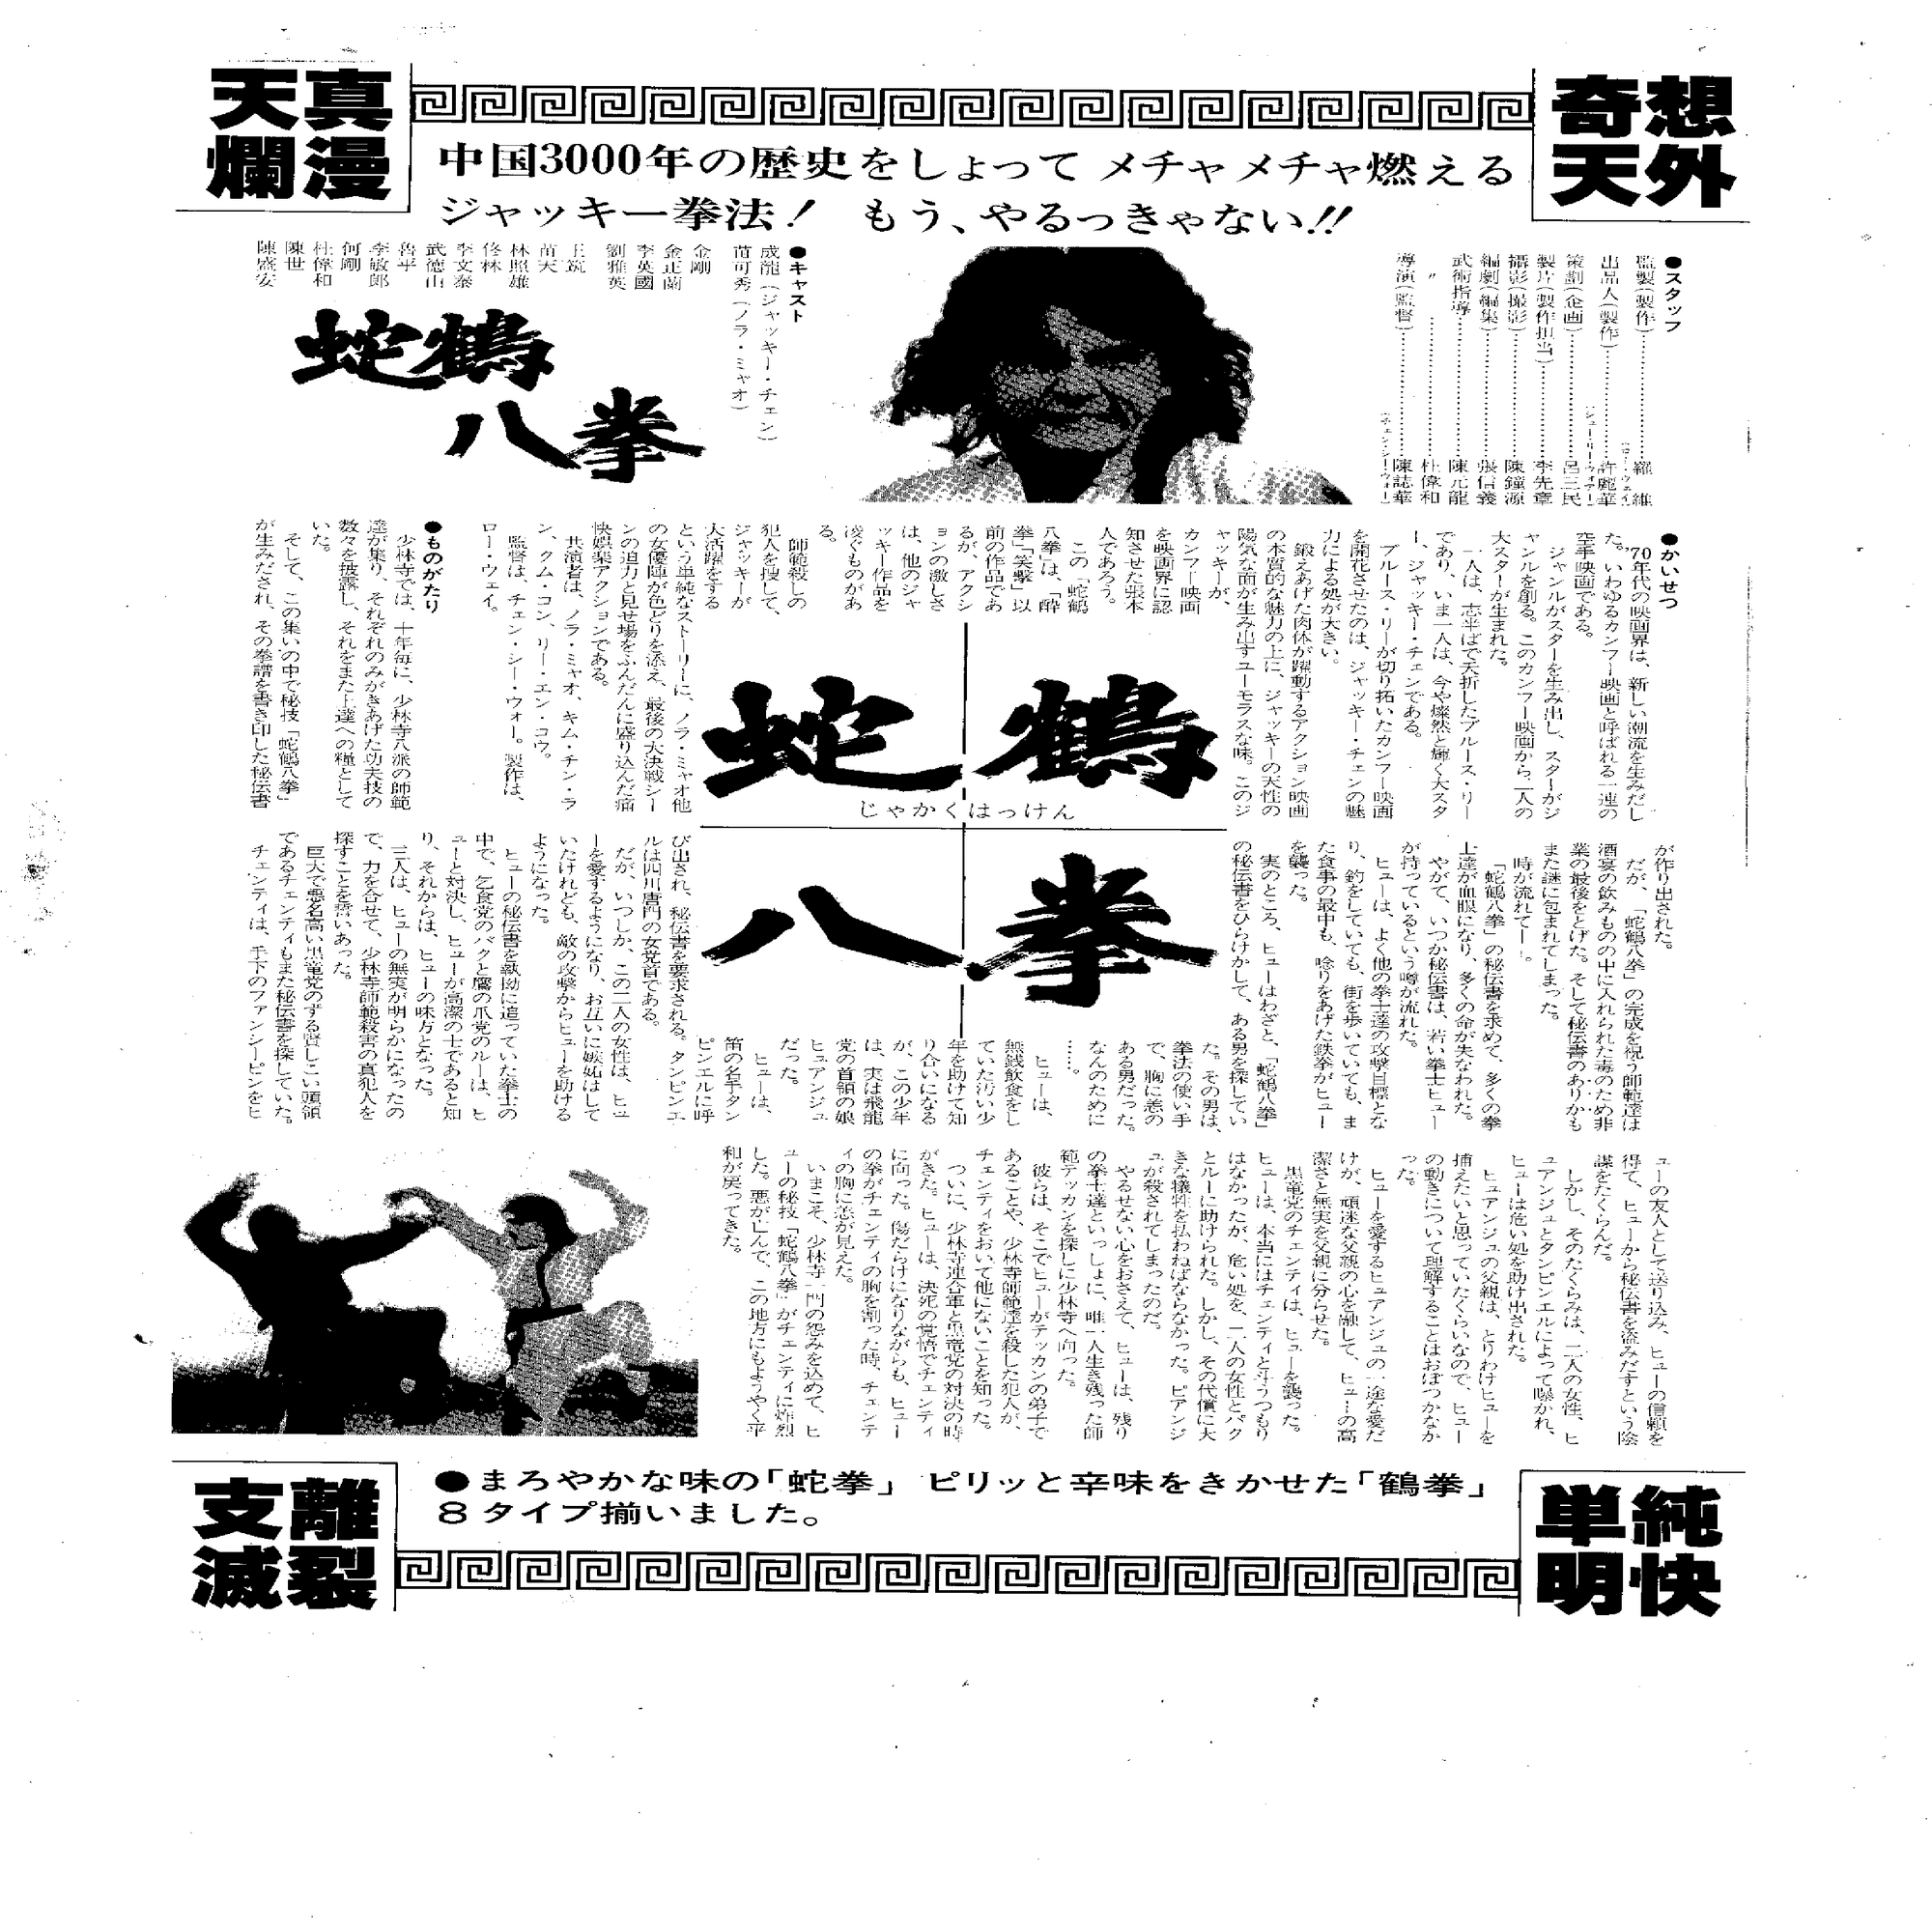 奇想
天外
天真
爛漫
中国3000年の歴史をしょって メチャメチャ燃える
ジャッキー拳法! もう、やるっきゃない!!
●スタッフ
監製(製作)………羅 維
出品人(製作)………許麗華
策劃(企画)………呂三民
製片(製作担当)………李先章
攝影(撮影)………陳鐘源
編劇(編集)………張信義
武術指導………陳元龍
〃 ………杜偉和
導演(監督)………陳誌華
●キャスト
成龍(ジャッキー・チェン)
苗可秀(ノラ・ミャオ)
金剛
金正蘭
李英國
劉雅英
王筑
苗天
林照雄
佟林
李文泰
武德山
魯平
李敏郎
何剛
杜偉和
陳世
陳盛安
蛇鶴
八拳
●かいせつ
'70年代の映画界は、新しい潮流を生みだし
た。いわゆるカンフー映画と呼ばれる一連の
空手映画である。
ジャンルがスターを生み出し、スターがジ
ャンルを創る。このカンフー映画から二人の
大スターが生まれた。
一人は、志半ばで夭折したブルース・リー
であり、いま一人は、今や燦然と輝く大スタ
ー、ジャッキー・チェンである。
ブルース・リーが切り拓いたカンフー映画
を開花させたのは、ジャッキー・チェンの魅
力による処が大きい。
鍛えあげた肉体が躍動するアクション映画
の本質的な魅力の上に、ジャッキーの天性の
陽気な面が生み出すユーモラスな味。このジ
ャッキーが、
カンフー映画
を映画界に認
知させた張本
人であろう。
この「蛇鶴
八拳」は、「酔
拳」「笑拳」以
前の作品であ
るが、アクシ
ョンの激しさ
は、他のジャ
ッキー作品を
凌ぐものがあ
る。
師範殺しの
犯人を捜して、
ジャッキーが
大活躍をする
という単純なストーリーに、ノラ・ミャオ他
の女優陣が色どりを添え、最後の大決戦シー
ンの迫力と見せ場をふんだんに盛り込んだ痛
快娯楽アクションである。
共演者は、ノラ・ミャオ、キム・チン・ラ
ン、クム・コン、リー・エン・コウ。
監督は、チェン・シー・ウォー。製作は、
ロー・ウェイ。
●ものがたり
少林寺では、十年毎に、少林寺八派の師範
達が集り、それぞれのみがきあげた功夫技の
数々を披露し、それをまた上達への糧として
いた。
そして、この集いの中で秘技「蛇鶴八拳」
が生みだされ、その拳譜を書き印した秘伝書
蛇鶴
じゃかくはっけん
八拳
が作り出された。
だが、「蛇鶴八拳」の完成を祝う師範達は
酒宴の飲みものの中に入れられた毒のため非
業の最後をとげた。そして秘伝書のありかも
また謎に包まれてしまった。
時が流れて―。
「蛇鶴八拳」の秘伝書を求めて、多くの拳
士達が血眼になり、多くの命が失なわれた。
やがて、いつか秘伝書は、若い拳士ヒュー
が持っているという噂が流れた。
ヒューは、よく他の拳士達の攻撃目標とな
り、釣をしていても、街を歩いていても、ま
た食事の最中も、唸りをあげた鉄拳がヒュー
を襲った。
実のところ、ヒューはわざと、「蛇鶴八拳」
の秘伝書をひらけかして、ある男を探してい
た。その男は、
拳法の使い手
で、胸に恙の
ある男だった。
なんのために
……。
ヒューは、
無銭飲食をし
ていた汚い少
年を助けて知
り合いになる
が、この少年
は、実は飛龍
党の首領の娘
ヒュアンジュ
だった。
ヒューは、
笛の名手タン
ピンエルに呼
び出され、秘伝書を要求される。タンピンエ
ルは四川唐門の女党首である。
だが、いつしか、この二人の女性は、ヒュ
ーを愛するようになり、お互いに嫉妬はして
いたけれども、敵の攻撃からヒューを助ける
ようになった。
ヒューの秘伝書を執拗に追っていた拳士の
中で、乞食党のパクと鷹の爪党のルーは、ヒ
ューと対決し、ヒューが高潔の士であると知
り、それからは、ヒューの味方となった。
三人は、ヒューの無実が明らかになったの
で、力を合せて、少林寺師範殺害の真犯人を
探すことを誓いあった。
巨大で悪名高い黒竜党のずる賢しこい頭領
であるチェンティもまた秘伝書を探していた。
チェンティは、手下のファンシーピンをヒ
ューの友人として送り込み、ヒューの信頼を
得て、ヒューから秘伝書を盗みだすという陰
謀をたくらんだ。
しかし、そのたくらみは、二人の女性、ヒ
ュアンジュとタンピンエルによって曝かれ、
ヒューは危い処を助け出された。
ヒュアンジュの父親は、とりわけヒューを
捕えたいと思っていたくらいなので、ヒュー
の動きについて理解することはおぼつかなか
った。
ヒューを愛するヒュアンジュの一途な愛だ
けが、頑迷な父親の心を融して、ヒューの高
潔さと無実を父親に分らせた。
黒竜党のチェンティは、ヒューを襲った。
ヒューは、本当にはチェンティと斗うつもり
はなかったが、危い処を、二人の女性とパク
とルーに助けられた。しかし、その代償に大
きな犠牲を払わねばならなかった。ピアンジ
ュが殺されてしまったのだ。
やるせない心をおさえて、ヒューは、残り
の拳士達といっしょに、唯一人生き残った師
範テッカンを探しに少林寺へ向った。
彼らは、そこでヒューがテッカンの弟子で
あることや、少林寺師範達を殺した犯人が、
チェンティをおいて他にないことを知った。
ついに、少林寺連合軍と黒竜党の対決の時
がきた。ヒューは、決死の覚悟でチェンティ
に向った。傷だらけになりながらも、ヒュー
の拳がチェンティの胸を割った時、チェンテ
ィの胸に恙が見えた。
いまこそ、少林寺一門の怨みを込めて、ヒ
ューの秘技「蛇鶴八拳」がチェンティに炸烈
した。悪が亡んで、この地方にもようやく平
和が戻ってきた。
●まろやかな味の「蛇拳」 ピリッと辛味をきかせた「鶴拳」
8タイプ揃いました。
単純
明快
支離
滅裂